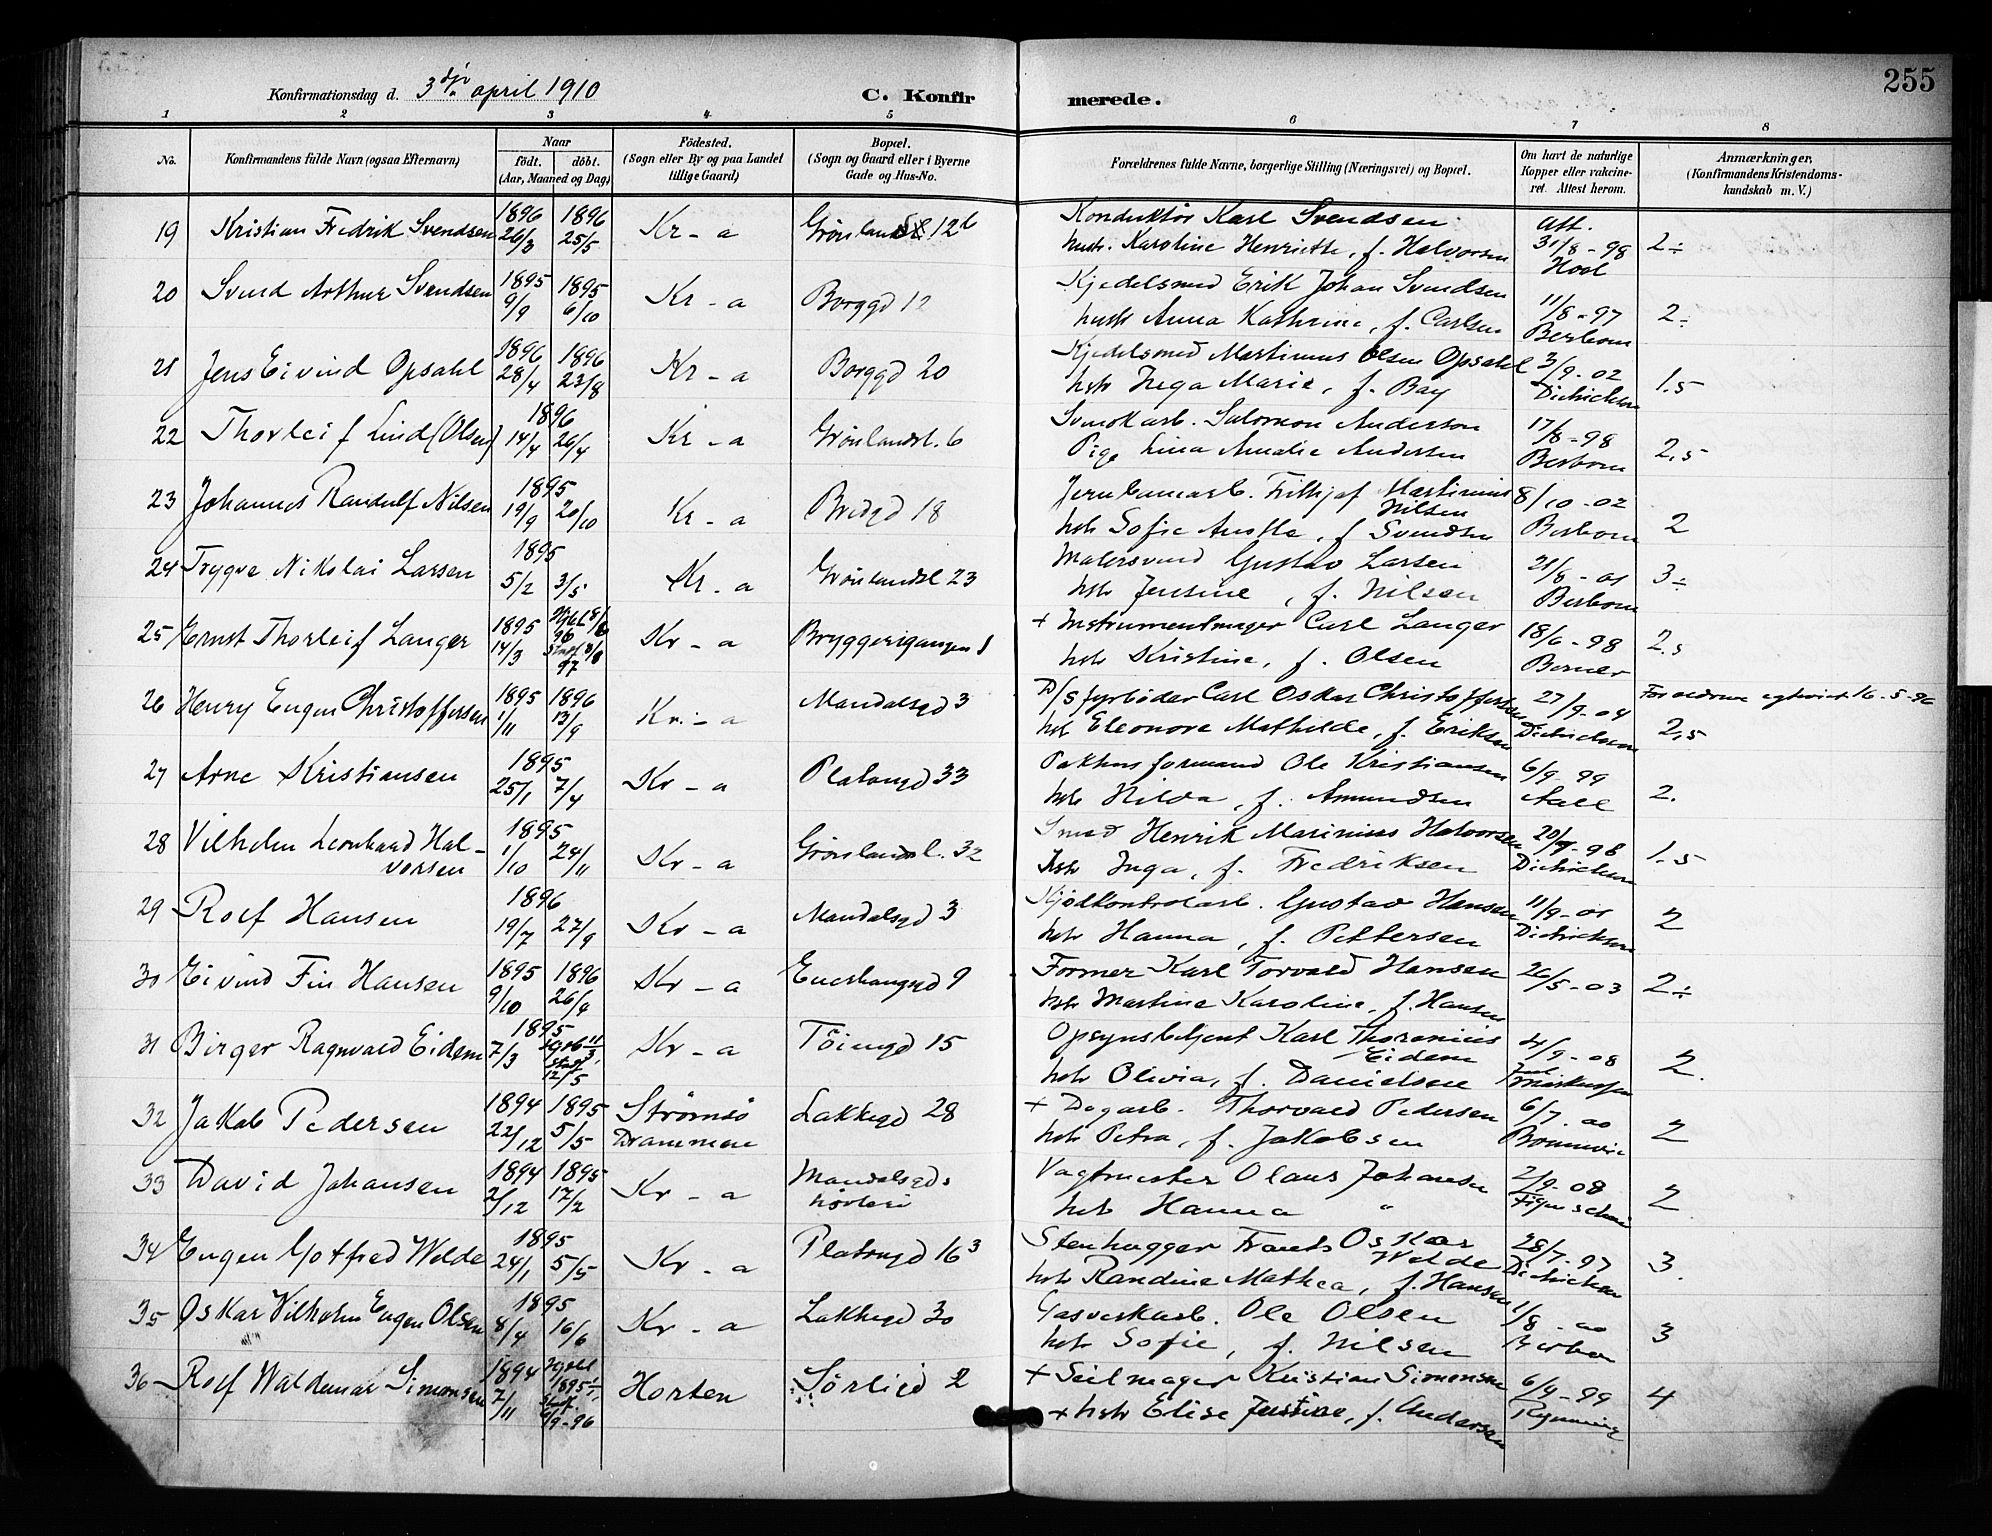 255
Konfirmationsdag d. 3dje april 1910
C. Konfirmerede.
1 2 3 4 5 6 7 8
No.
Konfirmandens fulde Navn (ogsaa Efternavn)
Naar født. døbt. (Aar, Maaned og Dag)
Fødested. (Sogn eller By og paa Landet tillige Gaard)
Bopæl. (Sogn og Gaard eller i Byerne Gade og Hus-No.
Forældrenes fulde Navne, borgerlige Stilling (Næringsvei) og Bopæl.
Om havt de naturlige Kopper eller vaccineret. Attest herom.
Anmærkninger, (Konfirmandens Kristendomskundskab m. V.)
19 Kristian Fredrik Svendsen 1896 26/3 1896 25/5 Kr-a 12b Konduktør Karl Svendsen Att. 31/8-98 2÷
hustr. Karoline Henriette, f. Halvorsen
20 Svend Arthur Svendsen 1895 9/9 1895 6/10 Kr-a Borggd 12 Kjedelsmed Erik Johan Svendsen 11/8-97 2÷
hustr Anna Kathrine, f. Carlsen
21 Jens Eivind Opsahl 1896 28/4 1896 23/8 Kr-a Borggd 20 Kjedelsmed Martinius Olsen Opsahl 3/9-02 1.5
hstr Inga Marie, f. Bay Dietrichson
22 Thorleif Lind (Olsen) 1896 14/4 26/4 Kr-a Grønlandsl. 6 Salomon Anderson 17/8-98 2,5
Pige Lina Amalie Andersen
23 Johannes Randulf Nilsen 1895 19/9 20/10 Kr-a Bredgd 18 Jernbanearb. Frithjof Martinius Nilsen 8/10-02 2
hstr Sofie , f. Svendsen
24 Trygve Nikolai Larsen 1895 5/2 3/5 Kr-a Grønlandsl 23 Malersvend Gustav Larsen 21/8-01 3÷
hstr Jensine, f. Nilsen
25 Ernst Thorleif Langer 1895 14/3 Kr-a Bryggerigangen 1 + Instrumentmager Carl Langer 18/6-98 2.5
hstr Kristine, f. Olsen Berner
26 Henry Eugen Christoffersen 1895 1/11 1896 13/9 Kr.-a Mandalsgd 3 D/S fyrbøder Carl Oskar Christoffersen 27/9-04 Forældrene egteviet 16-5-96
hstr Eleonore Mathilde, f. Eriksen Dietrichson 2,5
27 Arne Kristiansen 1895 25/1 7/4 Kr-a Platousgd 33 Pakhusformand Ole Kristiansen 6/9-99 2.
hstr Hilda, f. Amundsen Aall
28 Vilhelm Leonhard Halvorsen 1895 1/10 24/11 Kr-a Grønlandsl. 32 Smed Henrik Marinius Halvorsen 20/9-98 1.5
hstr Inga, f. Fredriksen Dietrichson
29 Rolf Hansen 1896 19/7 27/9 Kr-a Mandalsgd 3 Kjødkontrolarb. Gustav Hansen 11/9-01 2
hstr Hanna, f. Pettersen Dietrichson
30 Eivind Fin Hansen 1895 9/10 1896 26/4 Kr-a Enerhaugsgd 9 Former Karl Torvald Hansen 26/5-03 2÷
hstr Martine Karoline, f. Hansen
31 Birger Ragnvald Eidem 1895 7/3 12/5 Kr-a Töiengd 15 Opsynsbetjent Karl Eidem 4/9-08 2.
hstr Olivia, f. Danielsen
32 Jakob Pedersen 1894 22/12 1895 5/5 Strømsø Drammen Lakkegd 28 + Dagarb. Thorvald Pedersen 6/7-00 2
hstr Petra, f. Jakobsen
33 David Johansen 1894 2/12 1895 17/2 Kr-a Mandalsgds Vagtmester Olaus Johansen 2/9-08 2
hstr Hanna "
34 Eugen Gotfred Wolde 1895 24/1 5/5 Kr-a Platousgd 16³ Stenhugger Frants Oskar Wolde 28/7-97 3.
hstr Randine Mathea, f. Hansen Dietrichson
35 Oskar Vilhelm Eugen Olsen 1895 8/4 16/6 Kr-a Lakkegd 30 Gasverksarb. Ole Olsen 1/8-00 3
hstr Sofie, f. Nilsen
36 Rolf Waldemar Simonsen 1894 7/11 6/9-96 Horten Sørligd 2 + Seilmager Kristian Simonsen 6/9-99 4
+ hstr Elise Justine, f. Andersen